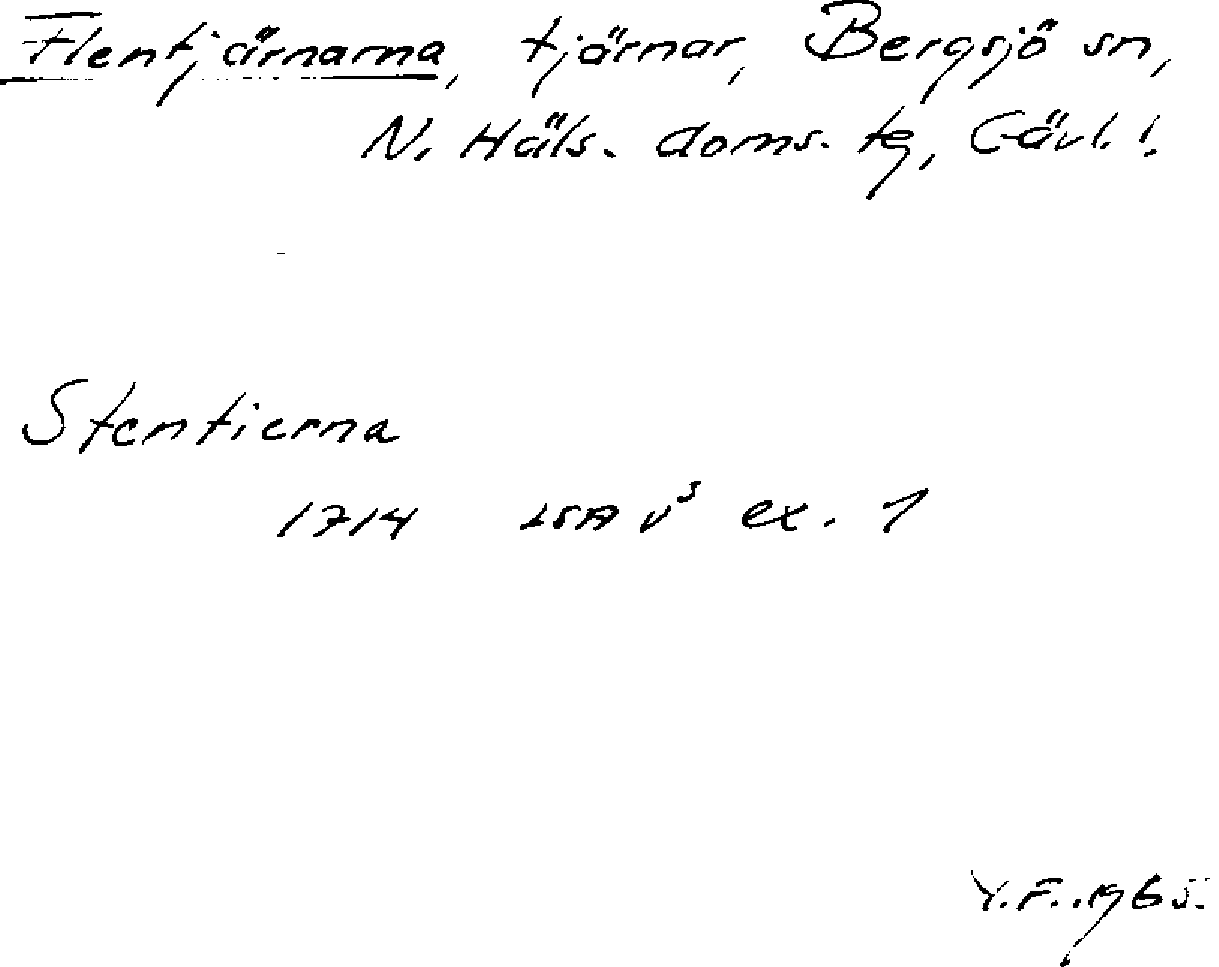 Flentjärnarna, tjärnar, Bergsjö sn,
N. Häls. doms. tg, Gävl. l.
Stentierna
1714 LSA V³ ex. 1
Y.F. 1965.